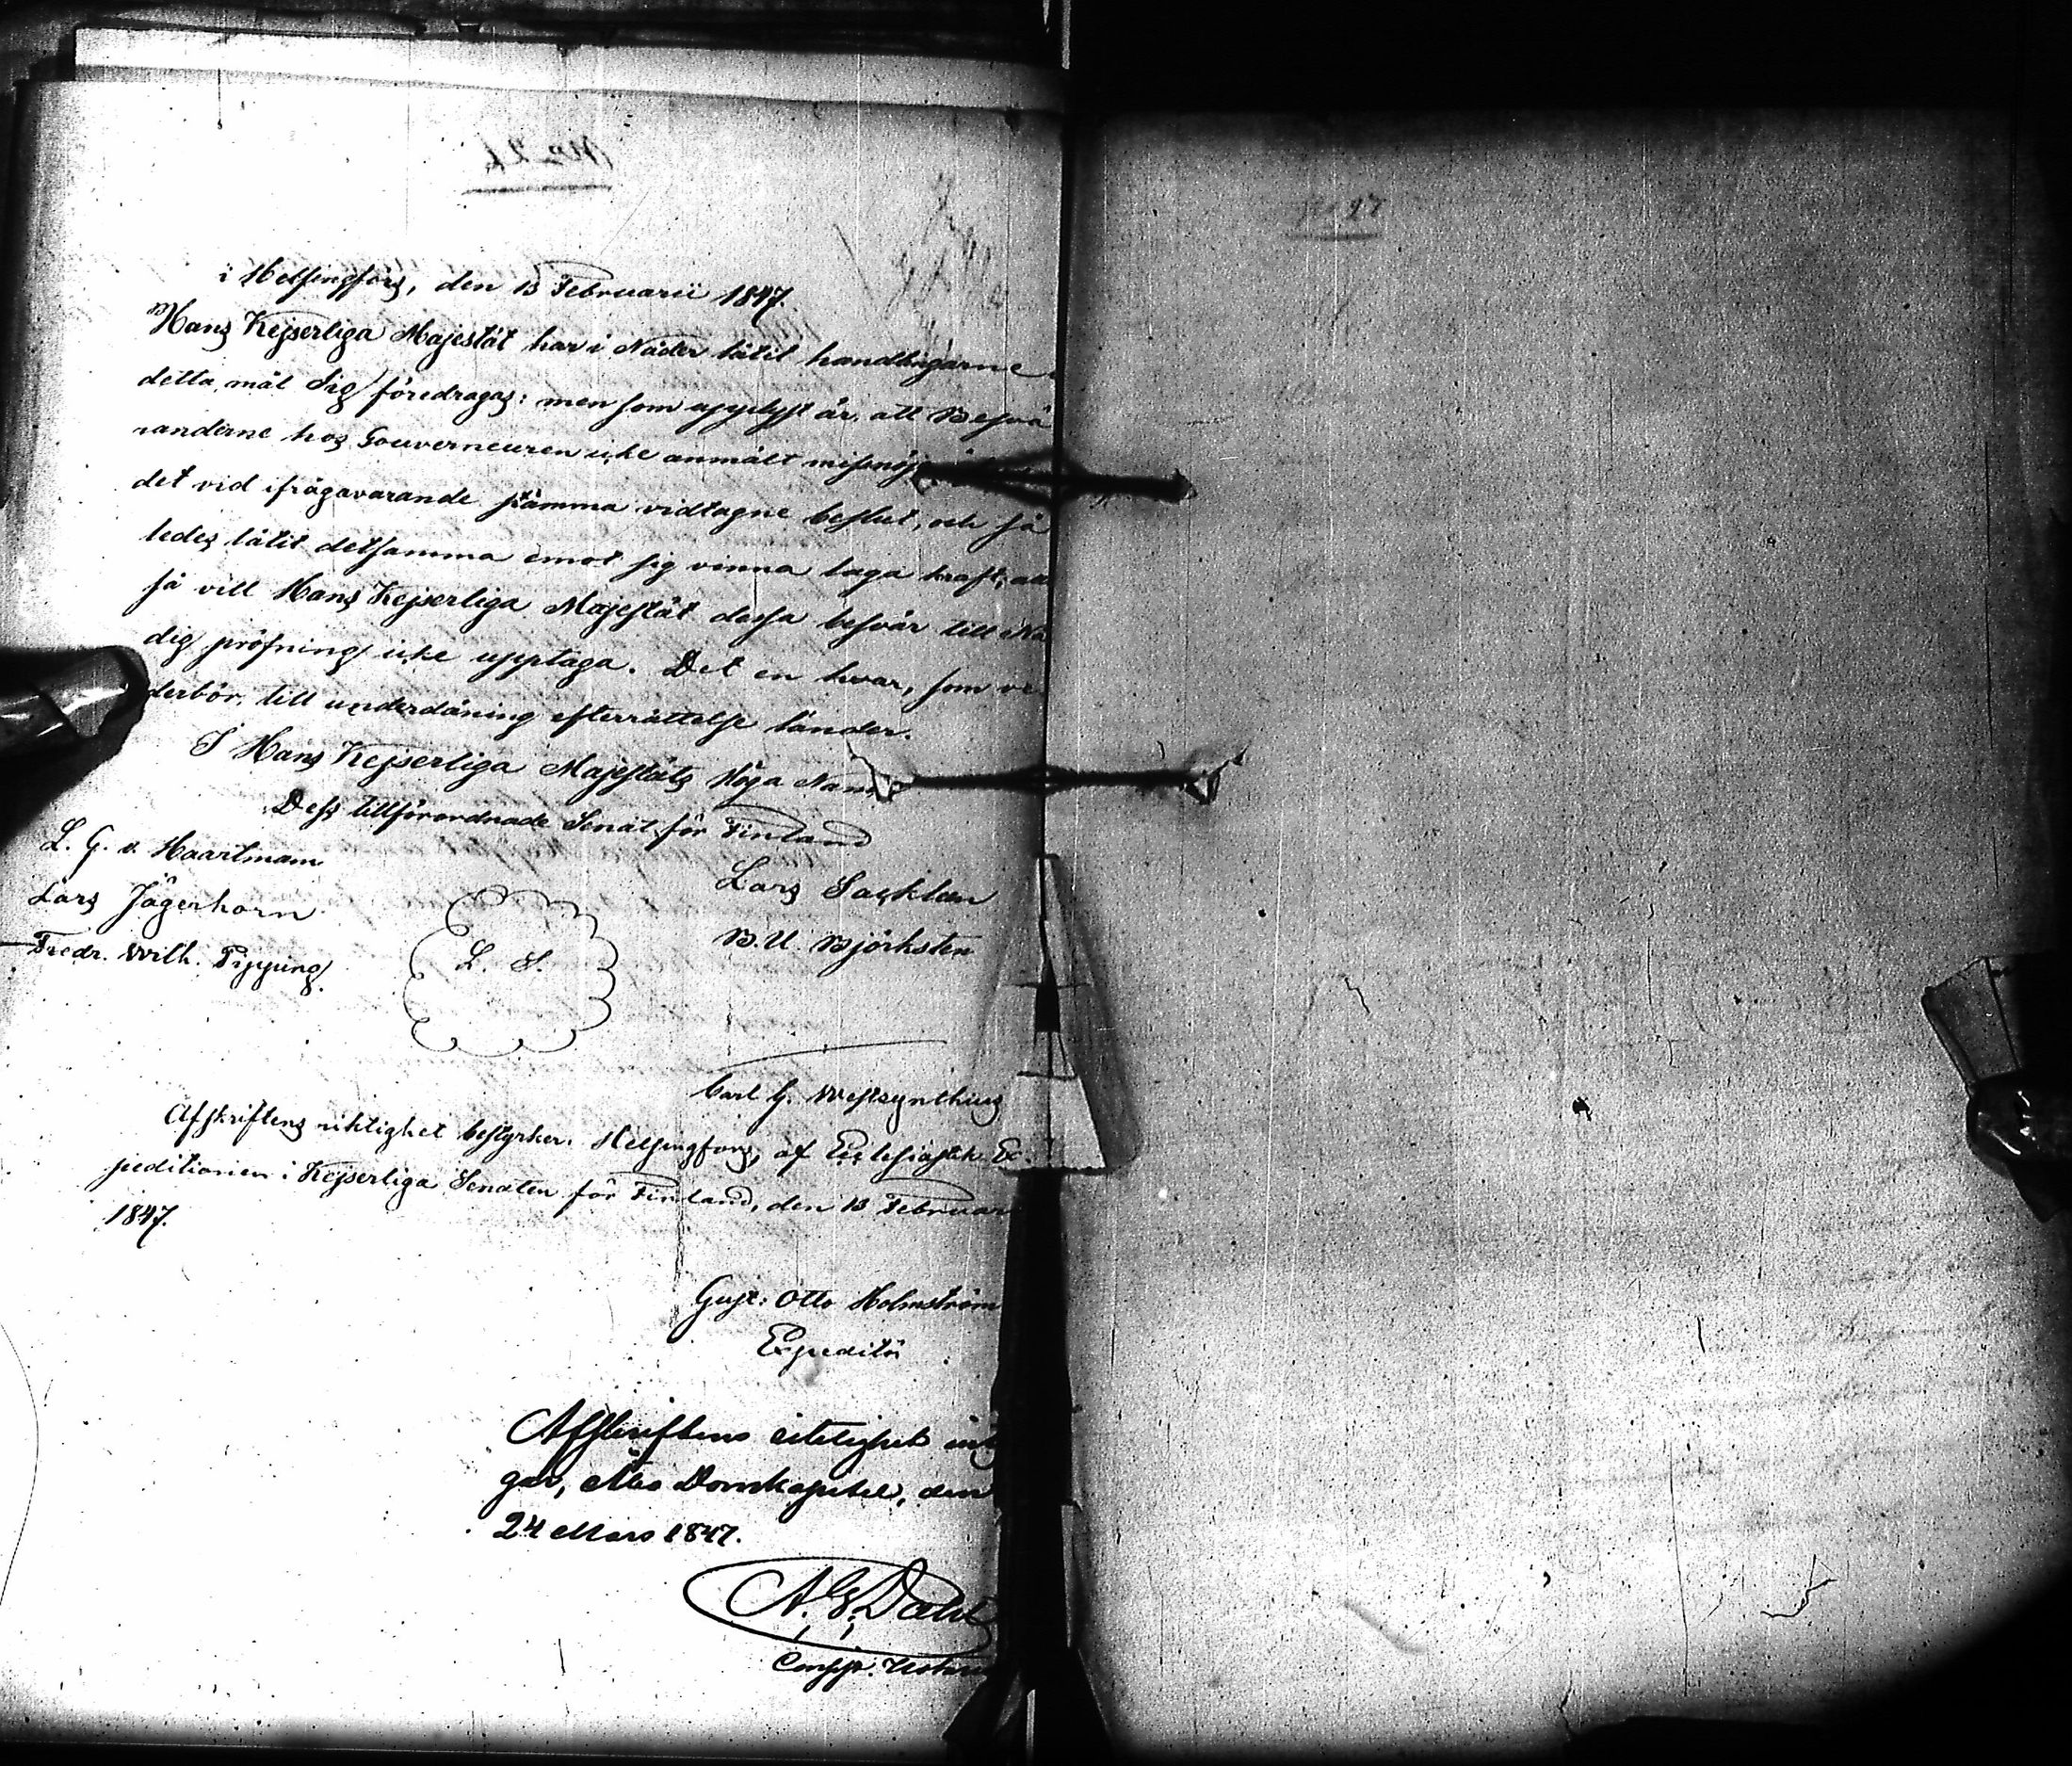 i Helsingfors, den 13 Februarii 1847.
Hans Kejserliga Majestät har i Nåder låtit handlingarne i
detta mål Sig föredragas: men som upplyst är, att Besvä
randerne hos Gouverneuren icke anmält missnöje
det vid ifrågavarande stämma vidtagne beslut, och så
ledes låtit detsamma emot sig vinna laga kraft; allt
så vill Hans Kejserliga Majestät dessa besvär till Nå
dig pröfning icke upptaga. Det en hvar, som ve
derbör, till underdånig efterrättelse länder.
I Hans Kejserliga Majestäts Höga Namn
Dess tillförordnade Senat för Finland
L. G. v. Haartman
Lars Sacklen
Lars Jägerhorn
B. U. Björksten
Fredr. Wilh. Pipping
L. S.
Carl G. Westzynthius
Afskriftens riktighet bestyrker. Helsingfors, af Ecclesiastik Ex
peditionen i Kejserliga Senaten för Finland, den 13 Februari
1847.
Gust: Otto Holmström
Expeditör
Afskriftens riktighet
Åbo Domkapitel, den
24 Mars 1847.
A. G. Dahl
No 27